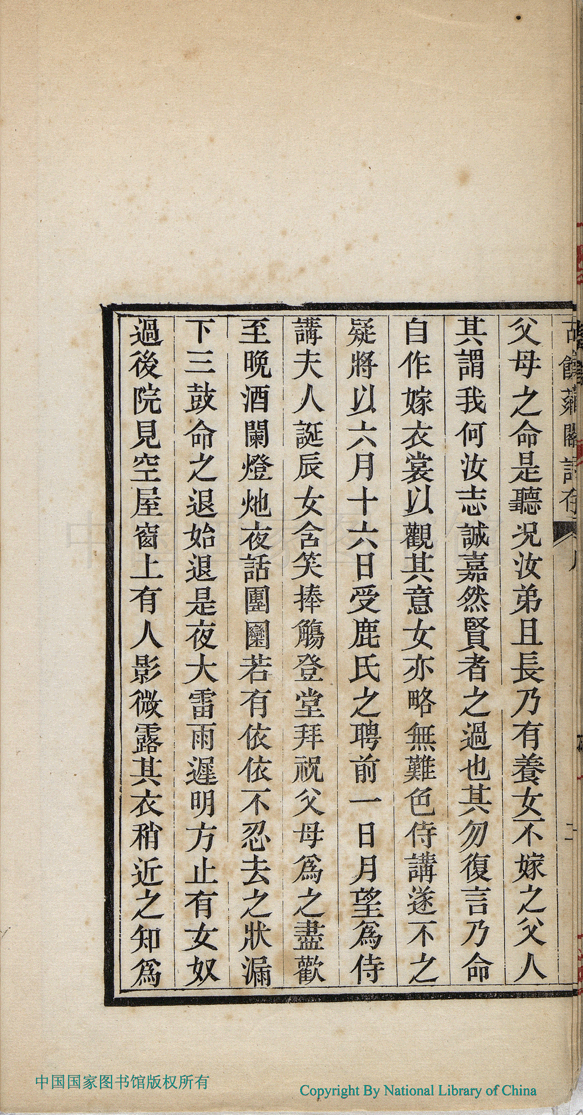 父母之命是聽况汝弟且長乃有養女不嫁之父人
其謂我何汝志誠嘉然賢者之過也其勿復言乃命
自作嫁衣裳以觀其意女亦略無難色侍講遂不之
疑將以六月十六日受鹿氏之聘前一日月望為侍
講夫人誕辰女含笑捧觴登堂拜祝父母爲之盡歡
至晚酒闌燈灺夜話團圞若有依依不忍去之狀漏
下三鼓命之退始退是夜大雷雨遲明方止有女奴
過後院見空屋窗上有人影微露其衣稍近之知爲
中国国家图书馆版权所有
Copyright By National Library of China